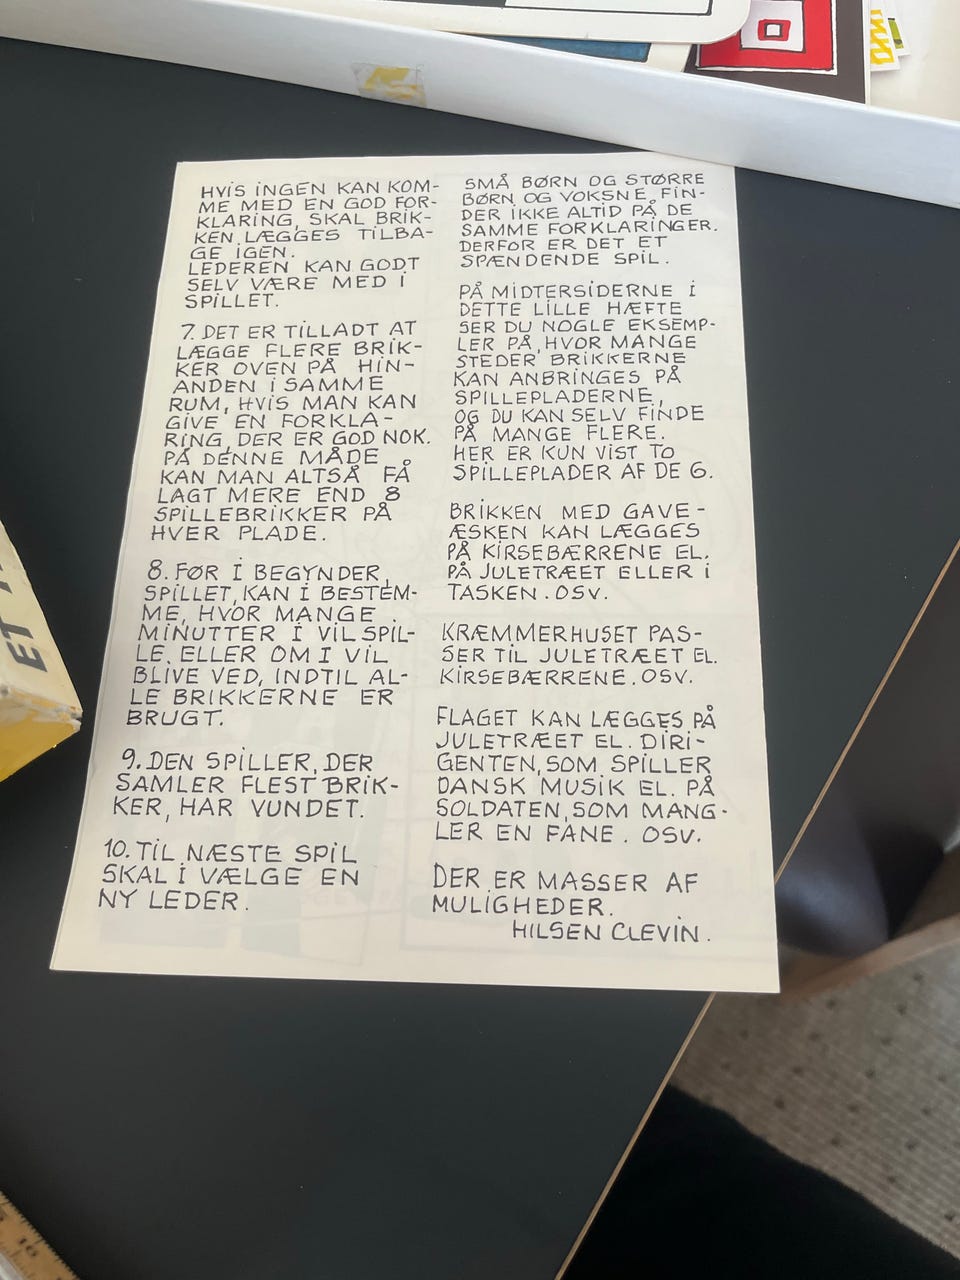 HVIS INGEN KAN KOM-
ME MED EN GOD FOR-
KLARING, SKAL BRIK-
KEN LÆGGES TILBA-
GE IGEN.
LEDEREN KAN GODT
SELV VÆRE MED I
SPILLET.
7. DET ER TILLADT AT
LÆGGE FLERE BRIK-
KER OVEN PÅ HIN-
ANDEN I SAMME
RUM, HVIS MAN KAN
GIVE EN FORKLA-
RING, DER ER GOD NOK.
PÅ DENNE MÅDE
KAN MAN ALTSÅ FÅ
LAGT MERE END 8
SPILLEBRIKKER PÅ
HVER PLADE.
8. FØR I BEGYNDER
SPILLET, KAN I BESTEM-
ME, HVOR MANGE
MINUTTER I VIL SPIL-
LE, ELLER OM I VIL
BLIVE VED, INDTIL AL-
LE BRIKKERNE ER
BRUGT.
9. DEN SPILLER, DER
SAMLER FLEST BRIK-
KER, HAR VUNDET.
10. TIL NÆSTE SPIL
SKAL I VÆLGE EN
NY LEDER.
SMÅ BØRN OG STØRRE
BØRN OG VOKSNE FIN-
DER IKKE ALTID PÅ DE
SAMME FORKLARINGER.
DERFOR ER DET ET
SPÆNDENDE SPIL.
PÅ MIDTERSIDERNE I
DETTE LILLE HÆFTE
SER DU NOGLE EKSEMP-
LER PÅ, HVOR MANGE
STEDER BRIKKERNE
KAN ANBRINGES PÅ
SPILLEPLADERNE,
OG DU KAN SELV FINDE
PÅ MANGE FLERE.
HER ER KUN VIST TO
SPILLEPLADER AF DE 6.
BRIKKEN MED GAVE-
ÆSKEN KAN LÆGGES
PÅ KIRSEBÆRRENE EL.
PÅ JULETRÆET ELLER I
TASKEN. OSV.
KRÆMMERHUSET PAS-
SER TIL JULETRÆET EL.
KIRSEBÆRRENE. OSV.
FLAGET KAN LÆGGES PÅ
JULETRÆET EL. DIRI-
GENTEN, SOM SPILLER
DANSK MUSIK EL. PÅ
SOLDATEN, SOM MANG-
LER EN FANE. OSV.
DER ER MASSER AF
MULIGHEDER.
HILSEN CLEVIN.
ET
16